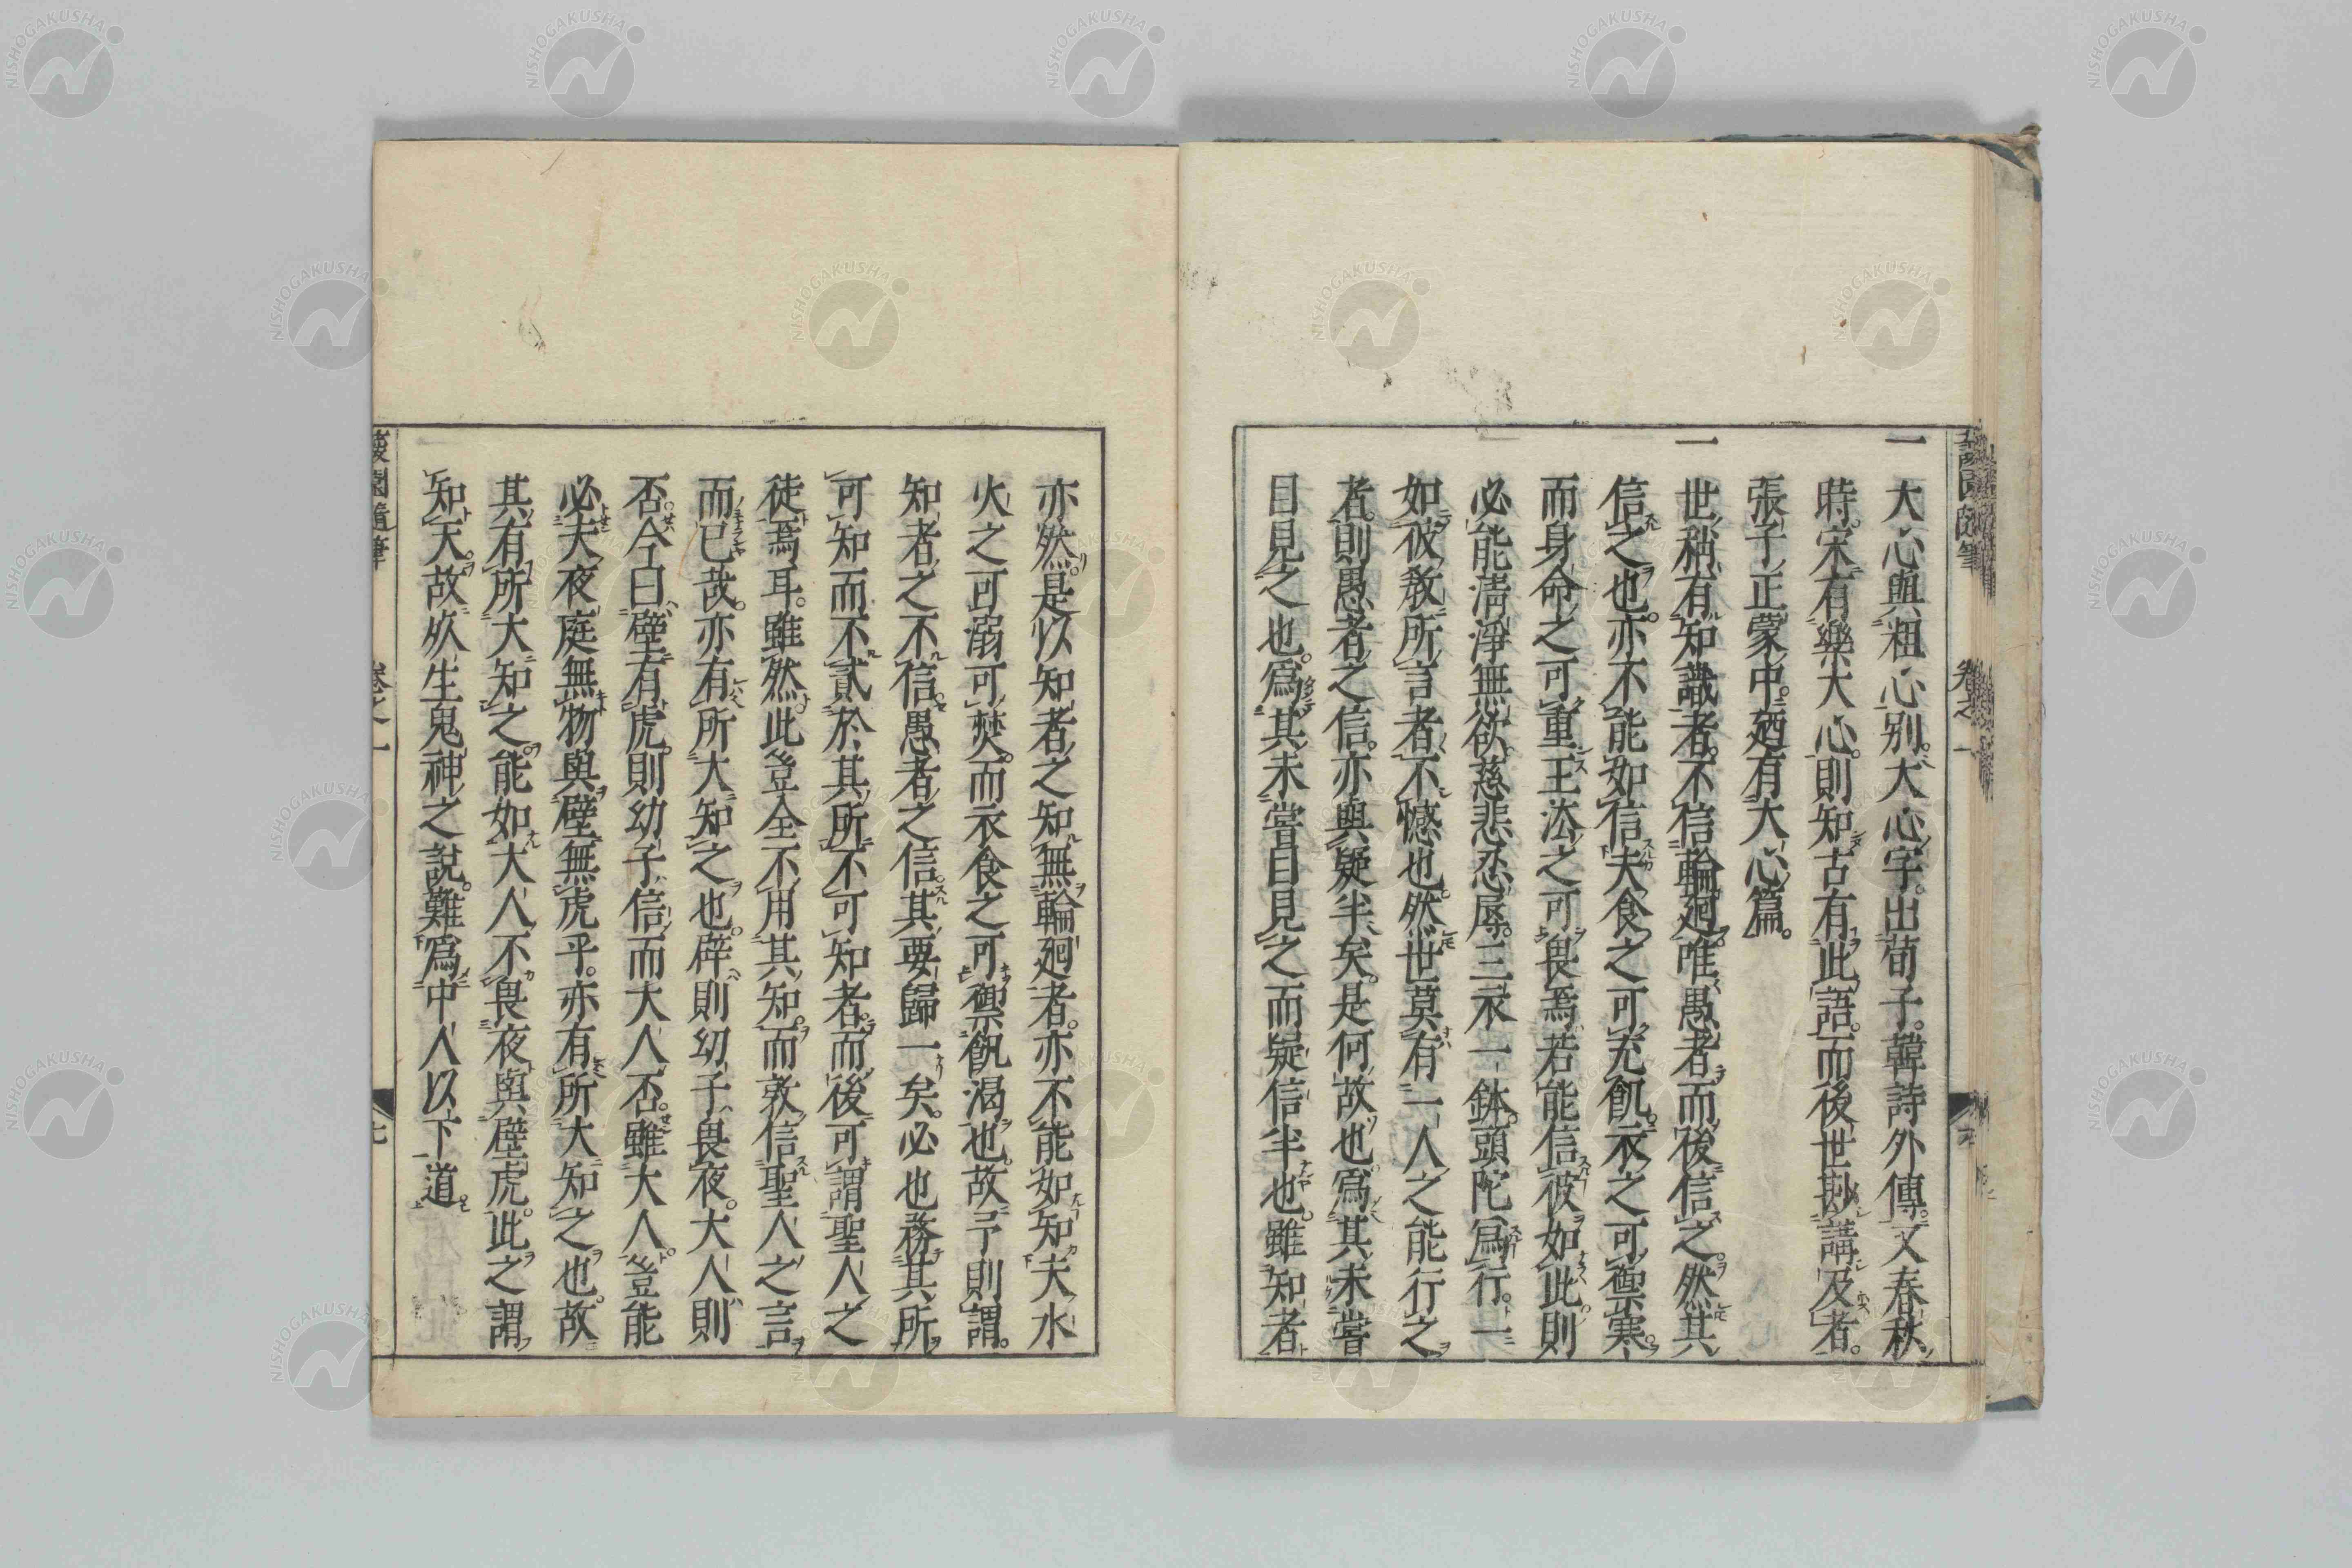 一大心與粗心別大心字出荀子韓詩外傳又春秋
時宋有樂大心則知古有此語而後世尠講及者
張子正蒙中廼有大心篇
一世稍有知識者不信輪廻唯愚者而後信之然其
信之也亦不能如信夫食之可充飢衣之可禦寒
而身命之可重王法之可畏焉若能信彼如此則
必能淸淨無欲慈悲忍辱三衣一鉢頭陀爲行一
如彼敎所言者不憾也然世莫有一人之能行之
者則愚者之信亦與疑半矣是何故也爲其未嘗
目見之也爲其未嘗目見之而疑信半也雖知者
亦然是以知者之知無輪廻者亦不能如知夫水
火之可溺可焚而衣食之可禦飢渴也故予則謂
知者之不信愚者之信其要歸一矣必也務其所
可知而不貳於其所不可知者而後可謂聖人之
徒焉耳雖然此豈全不用其知而敦信聖人之言
而已哉亦有所大知之也辟則幼子畏夜大人則
否今曰壁有虎則幼子信而大人否雖大人豈能
必夫夜庭無物與壁無虎乎亦有所大知之也故
其有所大知之能如大人不畏夜與壁虎此之謂
知天故死生鬼神之說難爲中人以下道
蘐園隨筆 卷之一 七
蘐園隨筆 卷之一
NISHOGAKUSHA